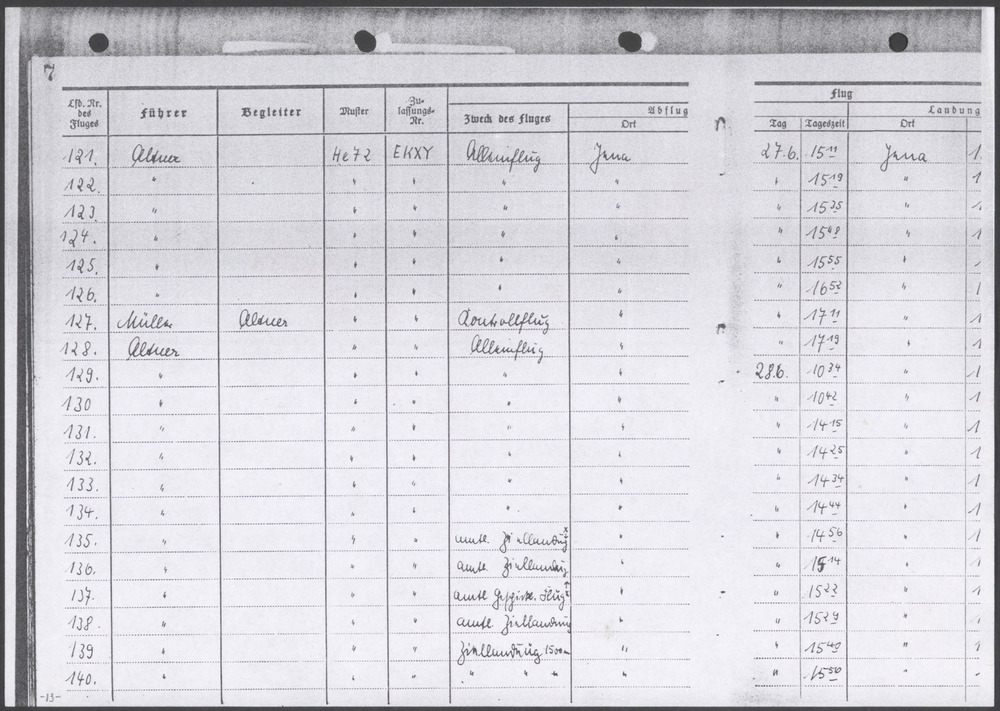 7
Lfd. Nr. des Fluges Führer Begleiter Muster Zu- lassungs- Nr. Zweck des Fluges Abflug Ort Flug Tag Tageszeit Landung Ort
121. Altner He 72 EKXY Alleinflug Jena 27.6. 15 11 Jena 1.
122. " " " " " " 15 19 " 1
123. " " " " " " 15 35 " 1.
124. " " " " " " 15 48 " 1
125. " " " " " " 15 55 " 1
126. " " " " " " 16 52 " 1
127. Müller Altner " " Kontrollflug " " 17 11 " 1
128. Altner " " Alleinflug " " 17 19 " 1
129. " " " " " 28.6. 10 34 " 1
130 " " " " " " 10 42 " 1
131. " " " " " " 14 15 " 1
132. " " " " " " 14 25 " 1
133. " " " " " " 14 34 " 1
134. " " " " " " 14 44 " 1
135. " " " amtl. Ziellandung x " " 14 56 " 1
136. " " " amtl. Ziellandung " " 15 14 " 1
137. " " " amtl Flug " " 15 22 " 1
138. " " " amtl. Ziellandung " " 15 29 " 1
139 " " " Ziellandung 1500m " " 15 40 " 1
140. " " " " " " " " 15 50 "
-13-